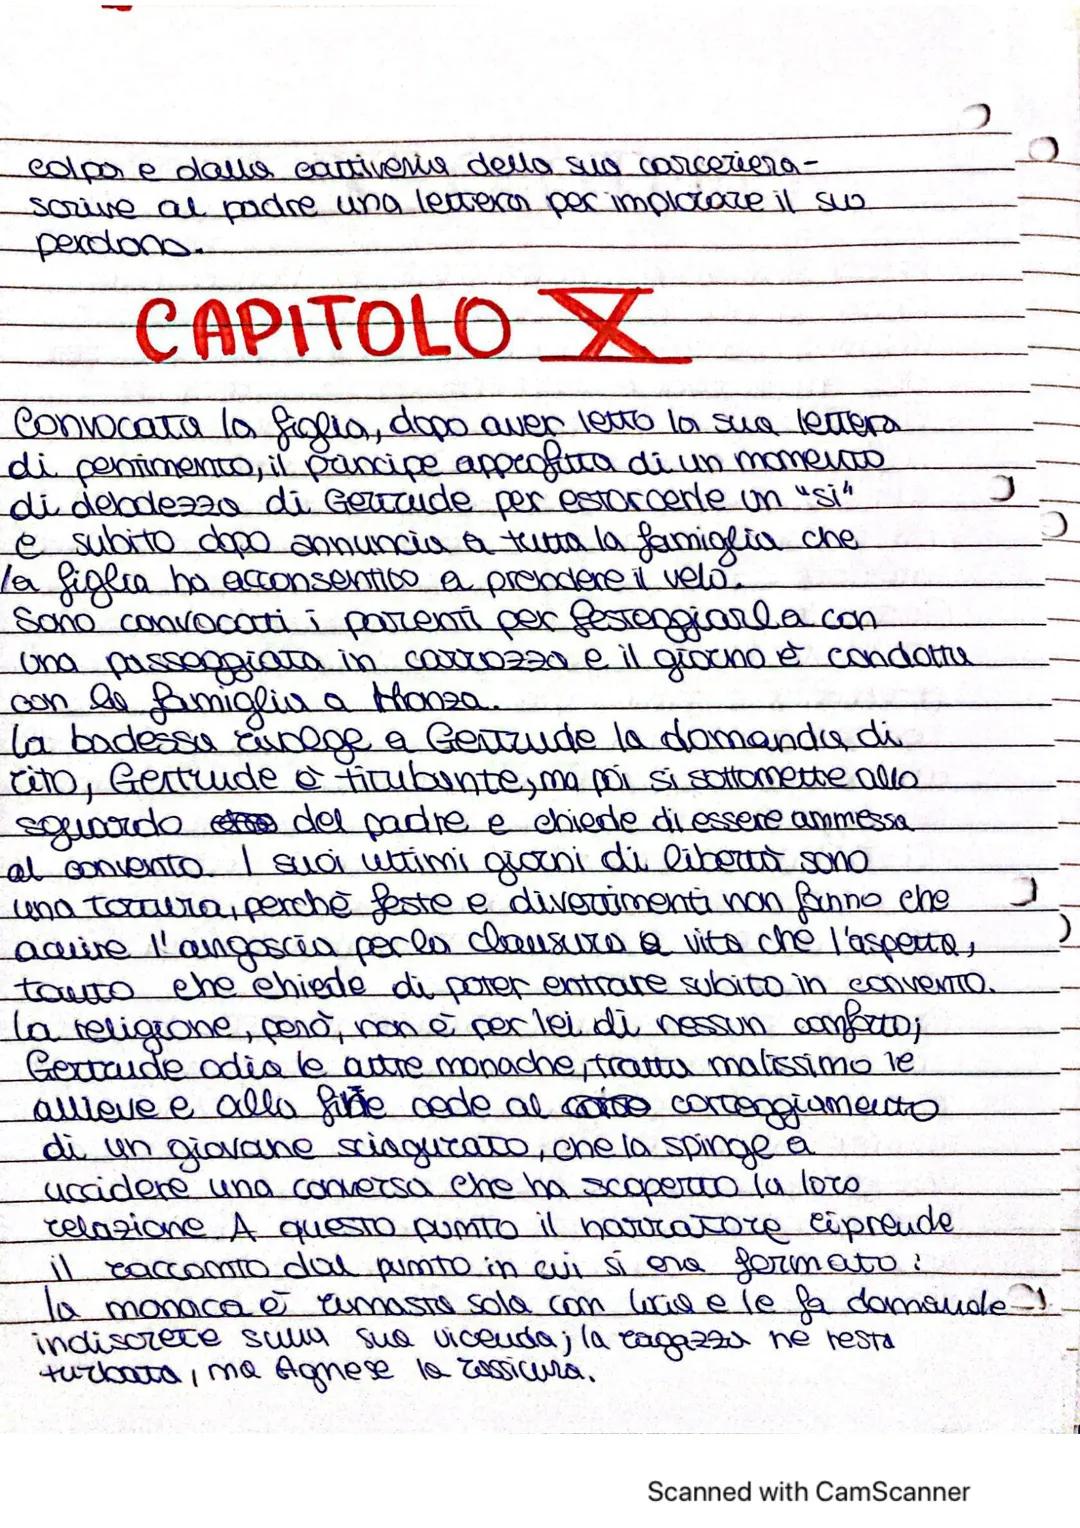 colpa e dalla cattiveria della sua carceriera-
scrive al padre una lettera per implorare il suo
perdono.
CAPITOLO X
Convocata la figlia, dopo aver letto la sua lettera
di pentimento, il principe approfitta di un momento
di debolezza di Gertrude per estorcerle un "si"
e subito dopo annuncia a tutta la famiglia che
la figlia ha acconsentito a prendere il velo.
Sono convocati i parenti per festeggiarla con
una passeggiata in carrozza e il giorno è condotta
con la famiglia a Monza.
La badessa rivolge a Gertrude la domanda di
rito, Gertrude è titubante, ma poi si sottomette allo
sguardo del padre e chiede di essere ammessa
al convento. I suoi ultimi giorni di libertà sono
una tortura, perchè feste e divertimenti non fanno che
acuire l'angoscia per la clausura a vita che l'aspetta,
tanto che chiede di poter entrare subito in convento.
La religione, però, non è per lei di nessun conforto;
Gertrude odia le altre monache, tratta malissimo le
allieve e alla fine cede al corteggiamento
di un giovane sciagurato, che la spinge a
uccidere una conversa che ha scoperto la loro
relazione. A questo punto il narratore riprende
il racconto dal punto in cui si era formato:
la monaca è rimasta sola con Lucia e le fa domande
indiscrete sulla sua vicenda; la ragazza ne resta
turbata, ma Agnese la rassicura.
Scanned with CamScanner